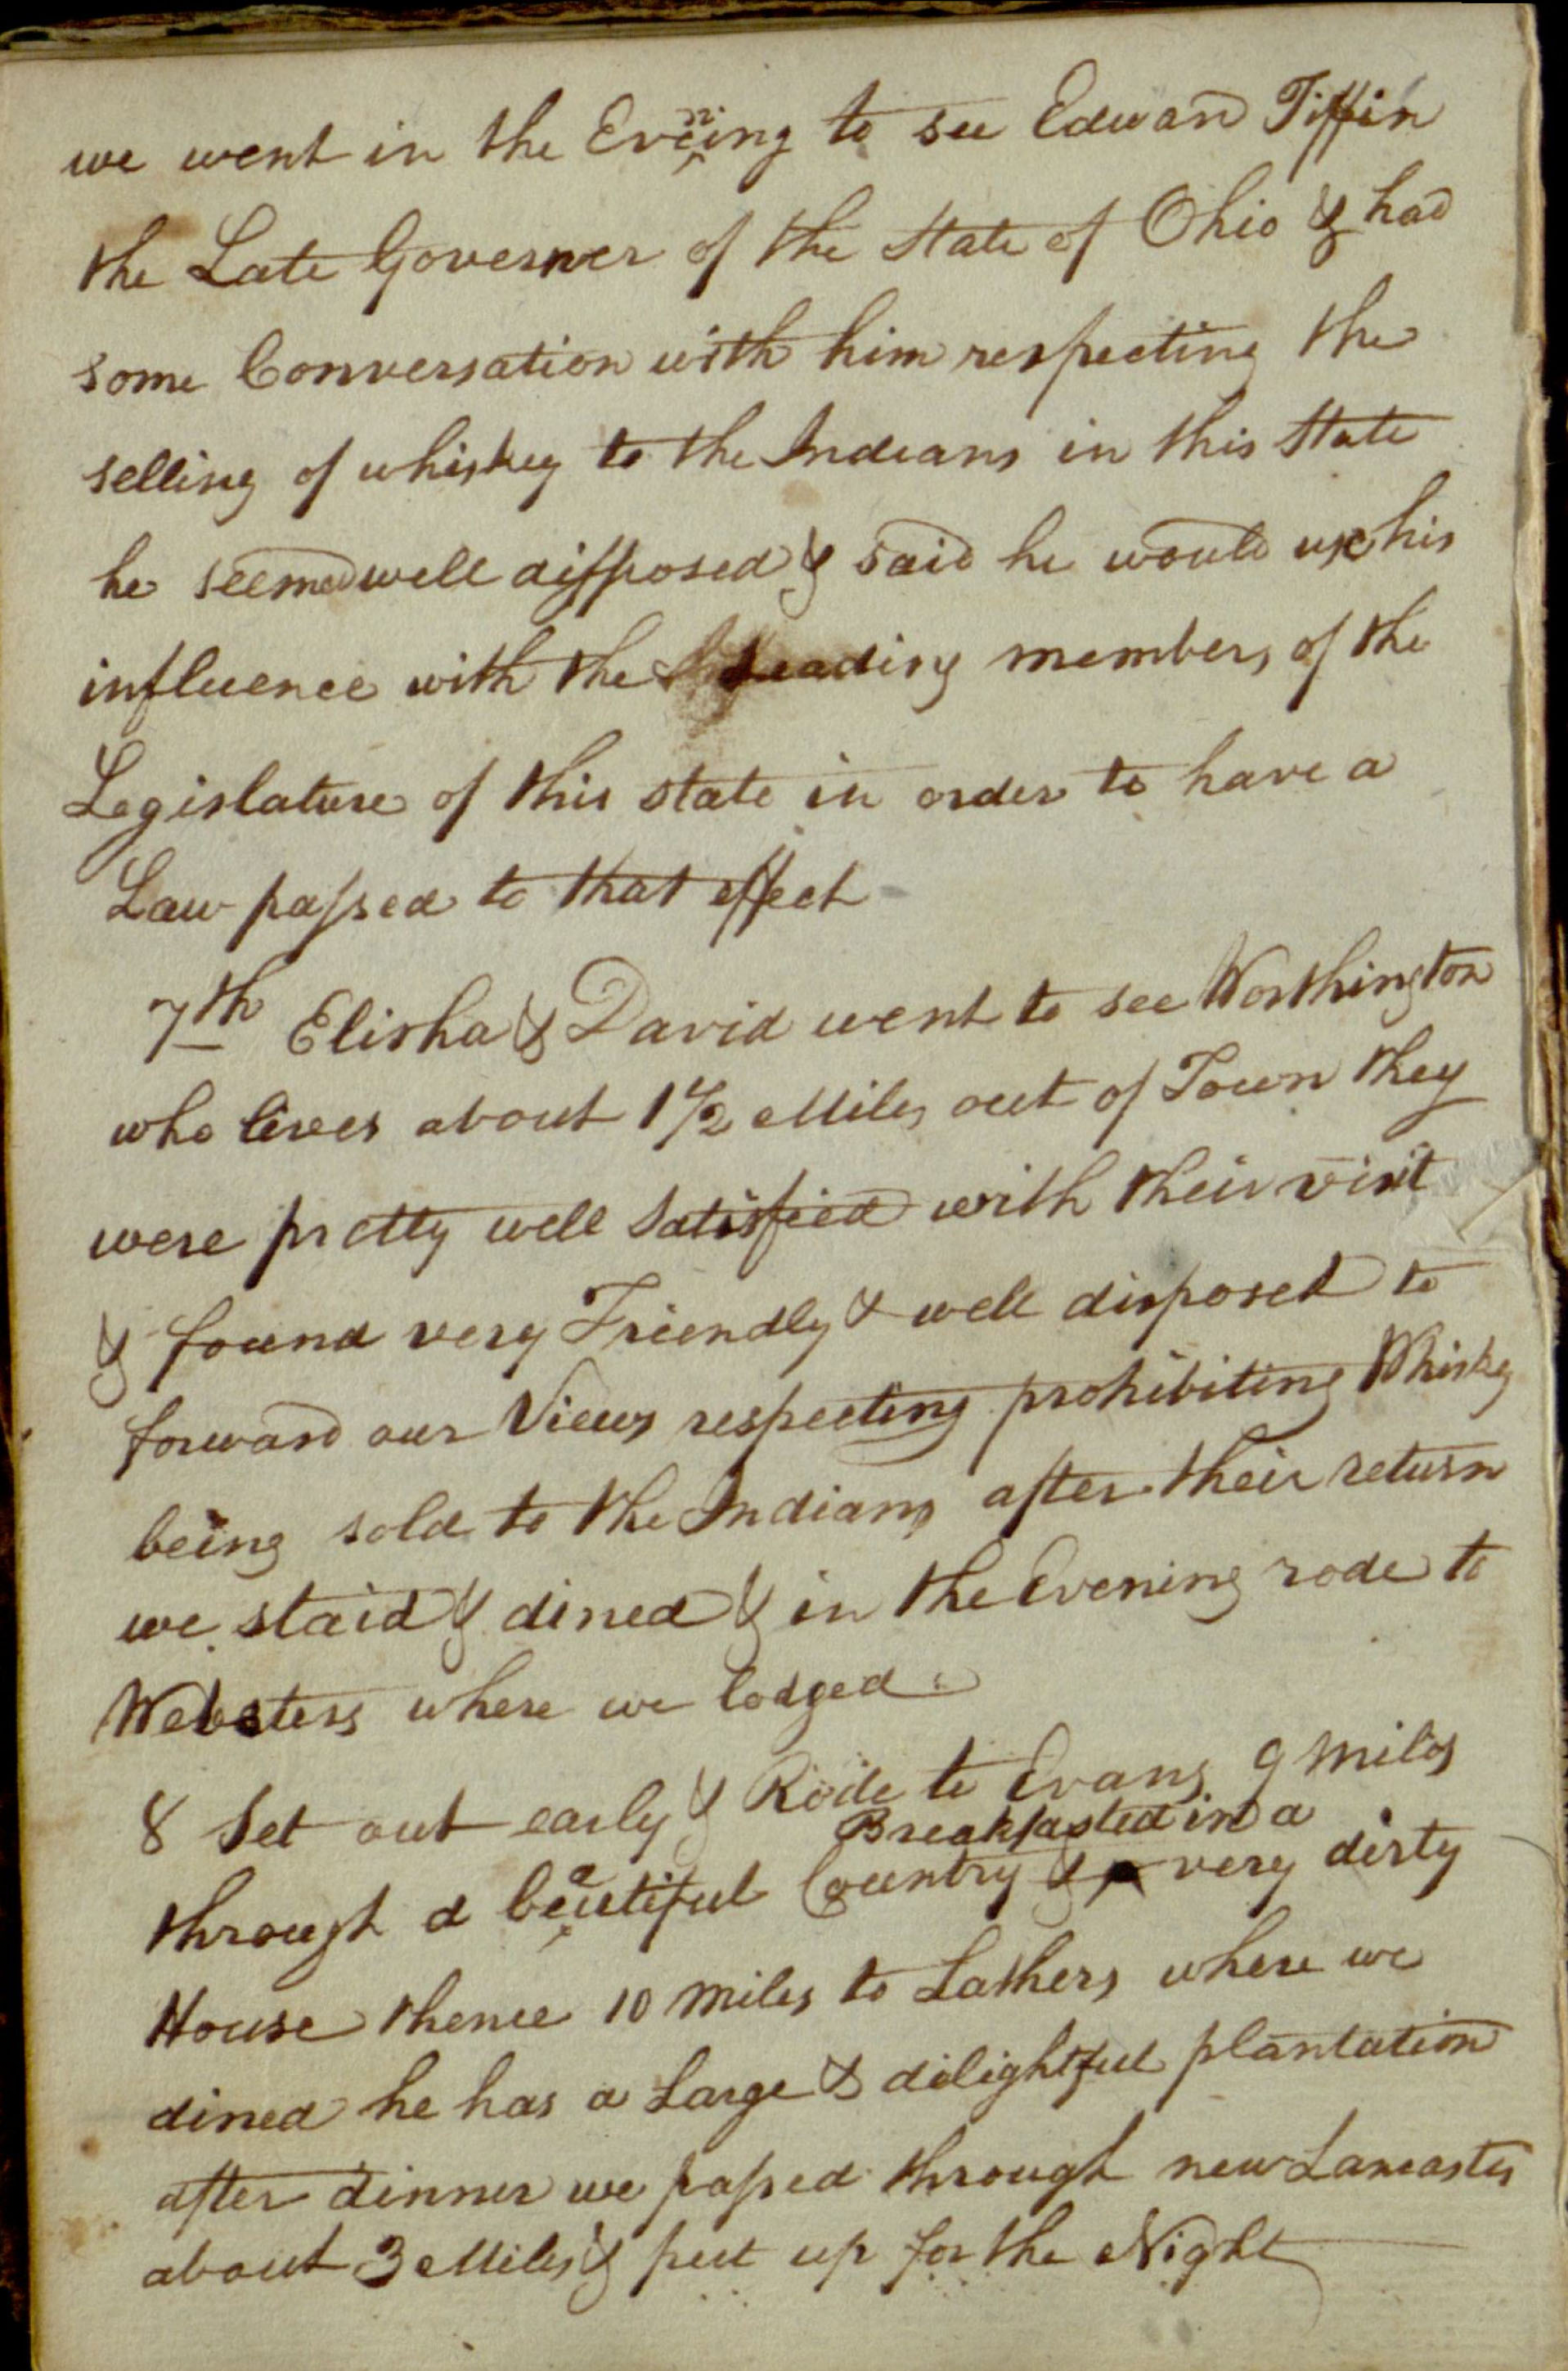 we went in the Evening to see Edward Tiffin
the Late Governer of the State of Ohio & had
some Conversation with him respecting the
selling of whiskey to the Indians in this State
he seemed well disposed & said he would use his
influence with the Leading members of the
Legislature of this state in order to have a
Law passed to that effect
7th Elisha & David went to see Worthington
who lives about 1 1/2 Miles out of Town they
were pretty well Satisfied with their visit
& found very Friendly & well disposed to
forward our Views respecting prohibiting Whiskey
being sold to the Indians after their return
we staid & dined & in the Evening rode to
Websters where we lodged
8 Set out early & Rode to Evans 9 miles
Breakfasted in a
through a beautiful Country & very dirty
House thence 10 miles to Lathers where we
dined he has a Large & dilightful plantation
after dinner we passed through new Lancaster
about 3 Miles & put up for the Night